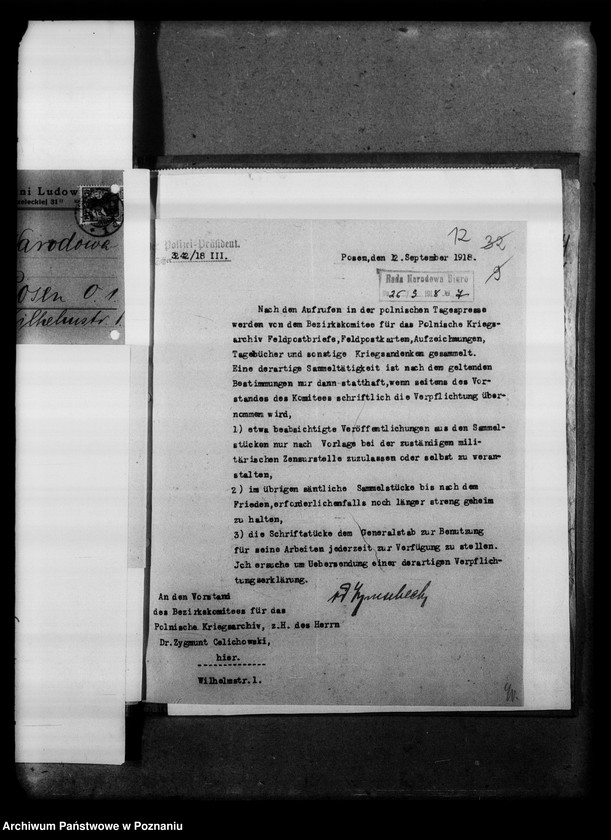 ni Ludow
Narodowa
Posen O. 1
Wilhelmstr. 1
12 32
Polizei-Präsident.
3242/18 III.
Posen, den 12. September 1918.
Rada Narodowa Biuro
9
Nach den Aufrufen in der polnischen Tagespresse
werden von dem Bezirkskomitee für das Polnische Kriegs-
archiv Feldpostbriefe, Feldpostkarten, Aufzeichnungen,
Tagebücher und sonstige Kriegsandenken gesammelt.
Eine derartige Sammeltätigkeit ist nach dem geltenden
Bestimmungen nur dann statthaft, wenn seitens des Vor-
standes des Komitees schriftlich die Verpflichtung über-
nommen wird,
1) etwa beabsichtigte Veröffentlichungen aus den Sammel-
stücken nur nach Vorlage bei der zuständigen mili-
tärischen Zensurstelle zuzulassen oder selbst zu veran-
stalten,
2) im übrigen sämtliche Sammelstücke bis nach dem
Frieden, erforderlichenfalls noch länger streng geheim
zu halten,
3) die Schriftstücke dem Generalstab zur Benutzung
für seine Arbeiten jederzeit zur Verfügung zu stellen.
Jch ersuche um Uebersendung einer derartigen Verpflich-
tungserklärung.
An den Vorstand
des Bezirkskomitees für das
Polnische Kriegsarchiv, z.H. des Herrn
Dr. Zygmunt Celichowski,
hier.
Wilhelmstr. 1.
Archiwum Państwowe w Poznaniu